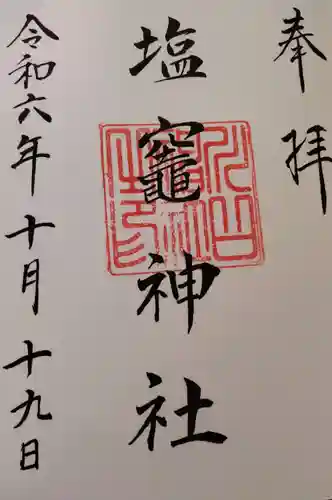 奉拝
塩竈神社
令和六年十月十九日